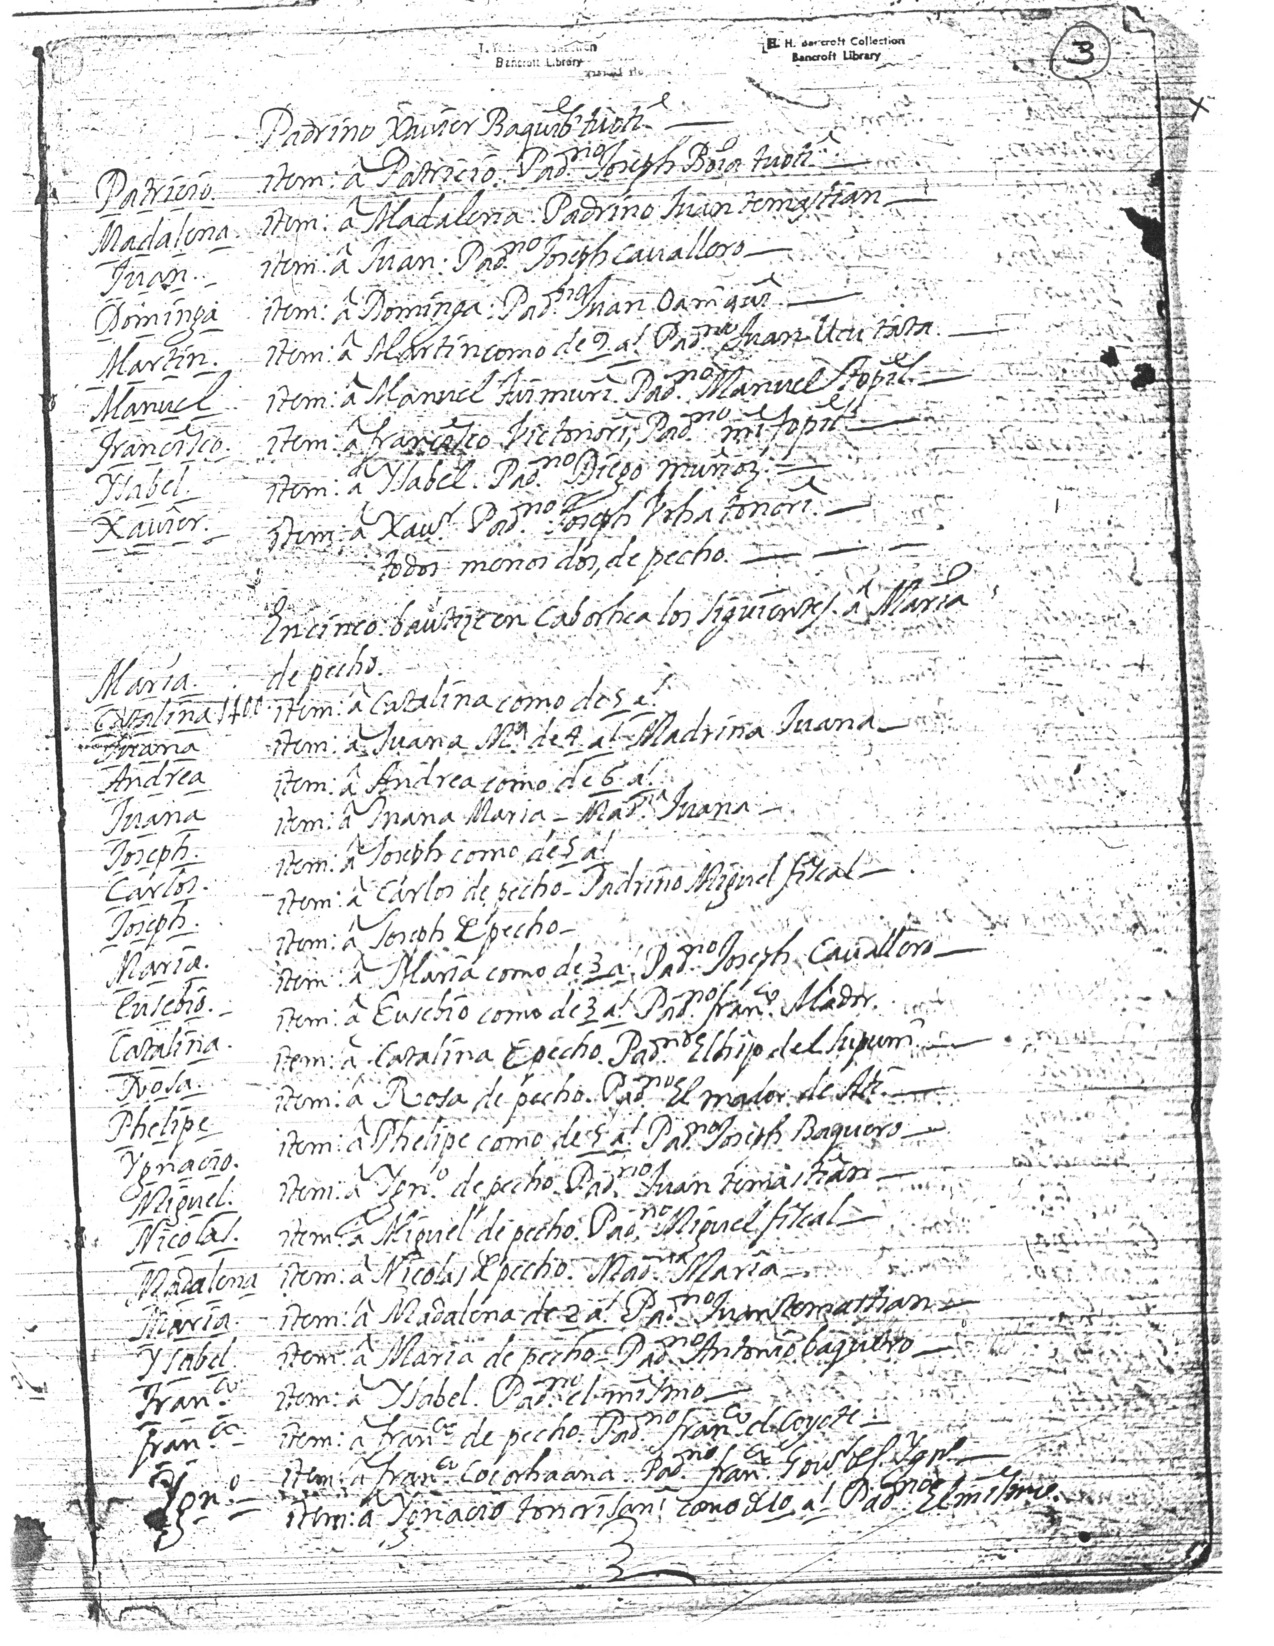 H. H. Bancroft Collection
Bancroft Library
Bancroft Library
3
Padrino Xavier
Patricio. item: â Patricio. Padno Joseph
Madalena item: â Madalena. Padrino Juan temastian
Juan. item: â Juan. Padno Joseph Cavallero
Dominga item: â Dominga. Padno Juan
Martin. item: â Martin como de 9 as Padno Juan Ucu tata.
Manuel item: â Manuel Padno Manuel topil
Francisco. item: â francisco Victonori, Padno mi topil
Ysabel item: â Ysabel. Padno Diego muñoz.
Xavier. item: â Xavr. Padno Joseph
todos menos dos, de pecho.
En cinco bautize en Caborhca los siguientes. â Maria
Maria. de pecho.
Catalina item: â Catalina como de 5 as
Juana item: â Juana Ma de 4 as Madrina Juana
Andrea item: â Andrea como de 6 as
Juana item: â Juana Maria Madna Juana
Joseph. item: â Joseph como de 5 as
Carlos. item: â Carlos de pecho Padrino Miguel fiscal
Joseph. item: â Joseph de pecho
Maria. item: â Maria como de 3 as Padno Joseph Cavallero
Eusebio. item: â Eusebio como de 3 as Padno franco Madr.
Catalina. item: â Catalina de pecho. Padno El hijo del
Rosa. item: â Rosa de pecho. Padno El mador de Ati
Phelipe item: â Phelipe como de 5 as Padno Joseph Baquero
Ygnacio. item: â Ygno de pecho. Padno Juan temastian
Miguel. item: â Miguel de pecho. Padno Miguel fiscal
Nicolas. item: â Nicolas de pecho. Madna Maria
Madalena item: â Madalena de 2 as Padno Juan temastian
Maria item: â Maria de pecho Padno Antonio baquero
Ysabel item: â Ysabel. Padno el mismo
Franco item: â franco de pecho. Padno franco el Coyote
franco item: â franco Padno franco
Ygno item: â Ygnacio como de 10 as Padno El mismo.